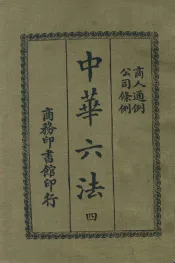 商人通例
公司條例
中華六法
四
商務印書館印行